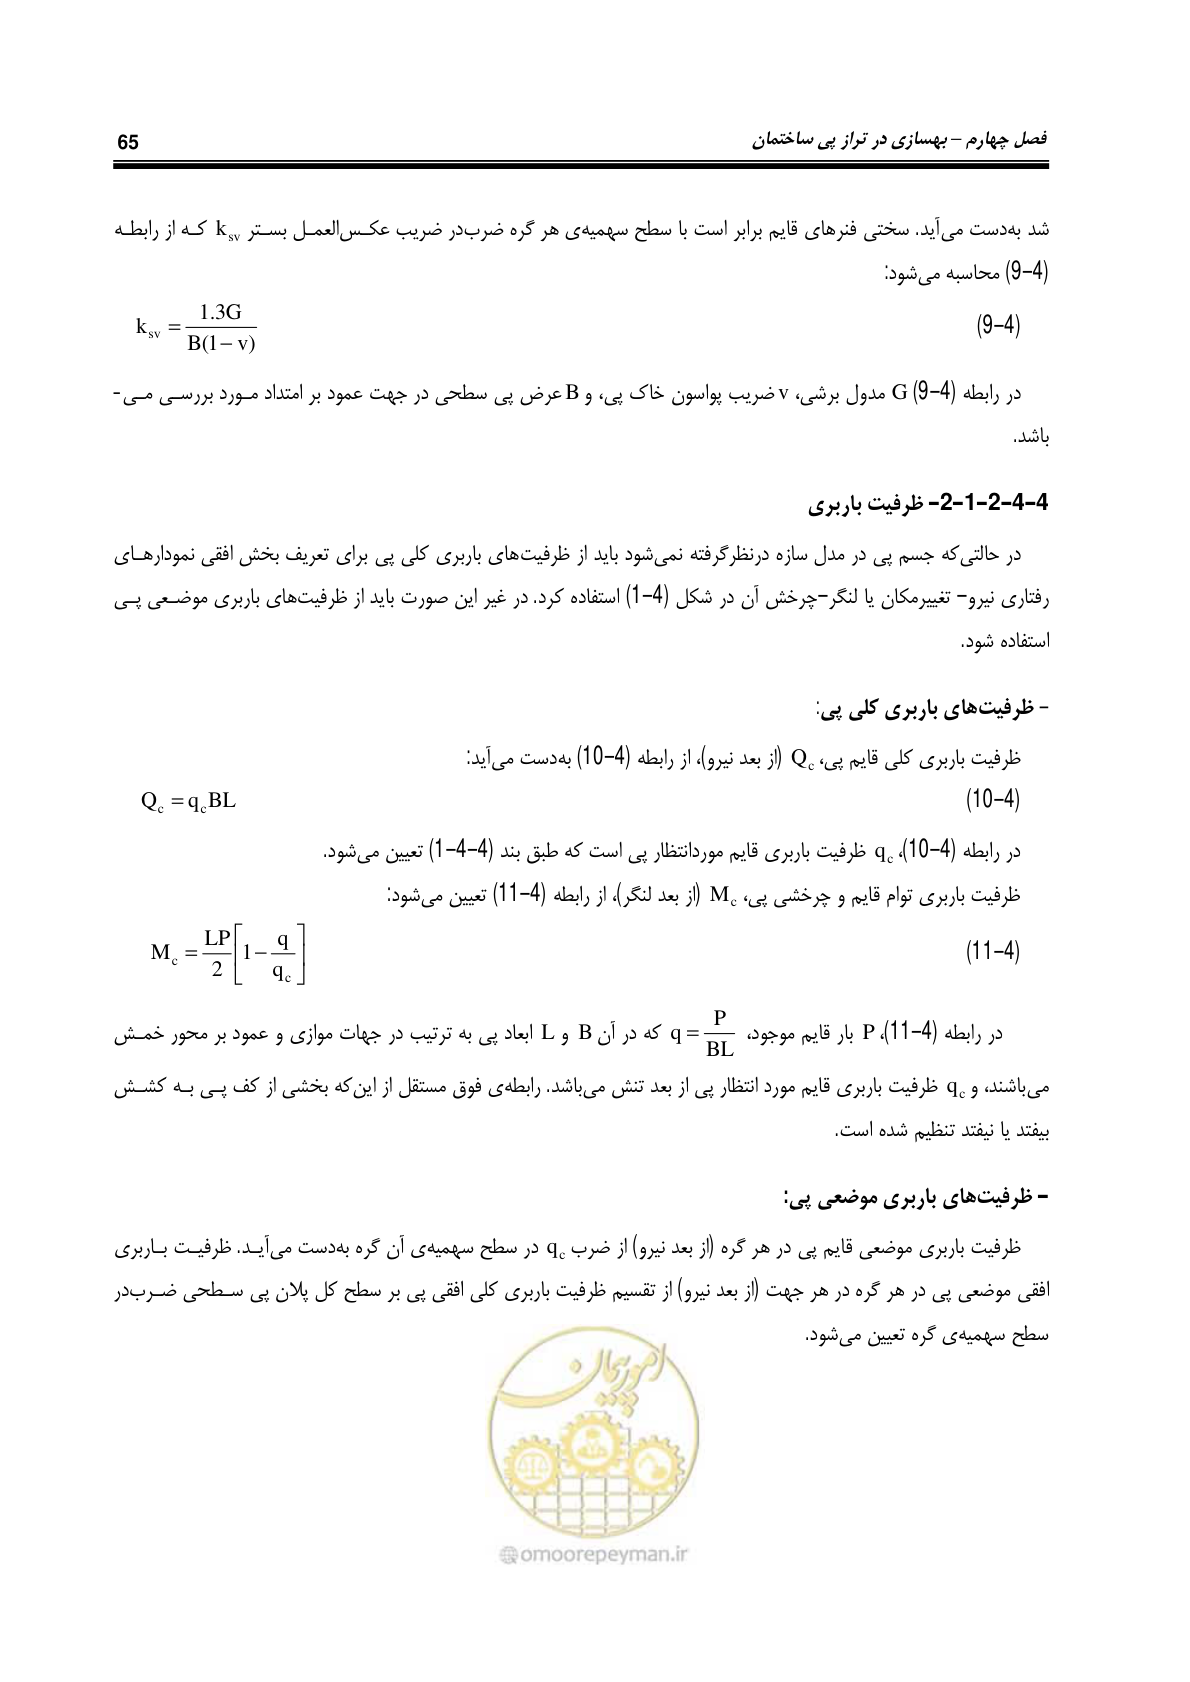 فصل چهارم – بهسازی در تراز پی ساختمان 65
شد به‌دست می‌آید. سختی فنرهای قایم برابر است با سطح سهمیه‌ی هر گره ضرب‌در ضریب عکس‌العمل بستر k_sv که از رابطه
(4-9) محاسبه می‌شود:
k_sv = 1.3G / B(1 − v) (4-9)
در رابطه (4-9) G مدول برشی، v ضریب پواسون خاک پی، و B عرض پی سطحی در جهت عمود بر امتداد مورد بررسی می-
باشد.
4-4-2-1-2- ظرفیت باربری
در حالتی‌که جسم پی در مدل سازه درنظرگرفته نمی‌شود باید از ظرفیت‌های باربری کلی پی برای تعریف بخش افقی نمودارهای
رفتاری نیرو- تغییرمکان یا لنگر-چرخش آن در شکل (4-1) استفاده کرد. در غیر این صورت باید از ظرفیت‌های باربری موضعی پی
استفاده شود.
- ظرفیت‌های باربری کلی پی:
ظرفیت باربری کلی قایم پی، Q_c (از بعد نیرو)، از رابطه (4-10) به‌دست می‌آید:
Q_c = q_c BL (4-10)
در رابطه (4-10)، q_c ظرفیت باربری قایم موردانتظار پی است که طبق بند (4-4-1) تعیین می‌شود.
ظرفیت باربری توام قایم و چرخشی پی، M_c (از بعد لنگر)، از رابطه (4-11) تعیین می‌شود:
M_c = LP/2 [1 − q/q_c] (4-11)
در رابطه (4-11)، P بار قایم موجود، q = P/BL که در آن B و L ابعاد پی به ترتیب در جهات موازی و عمود بر محور خمش
می‌باشند، و q_c ظرفیت باربری قایم مورد انتظار پی از بعد تنش می‌باشد. رابطه‌ی فوق مستقل از این‌که بخشی از کف پی به کشش
بیفتد یا نیفتد تنظیم شده است.
- ظرفیت‌های باربری موضعی پی:
ظرفیت باربری موضعی قایم پی در هر گره (از بعد نیرو) از ضرب q_c در سطح سهمیه‌ی آن گره به‌دست می‌آید. ظرفیت باربری
افقی موضعی پی در هر گره در هر جهت (از بعد نیرو) از تقسیم ظرفیت باربری کلی افقی پی بر سطح کل پلان پی سطحی ضرب‌در
سطح سهمیه‌ی گره تعیین می‌شود.
امور پیمان
@omoorepeyman.ir